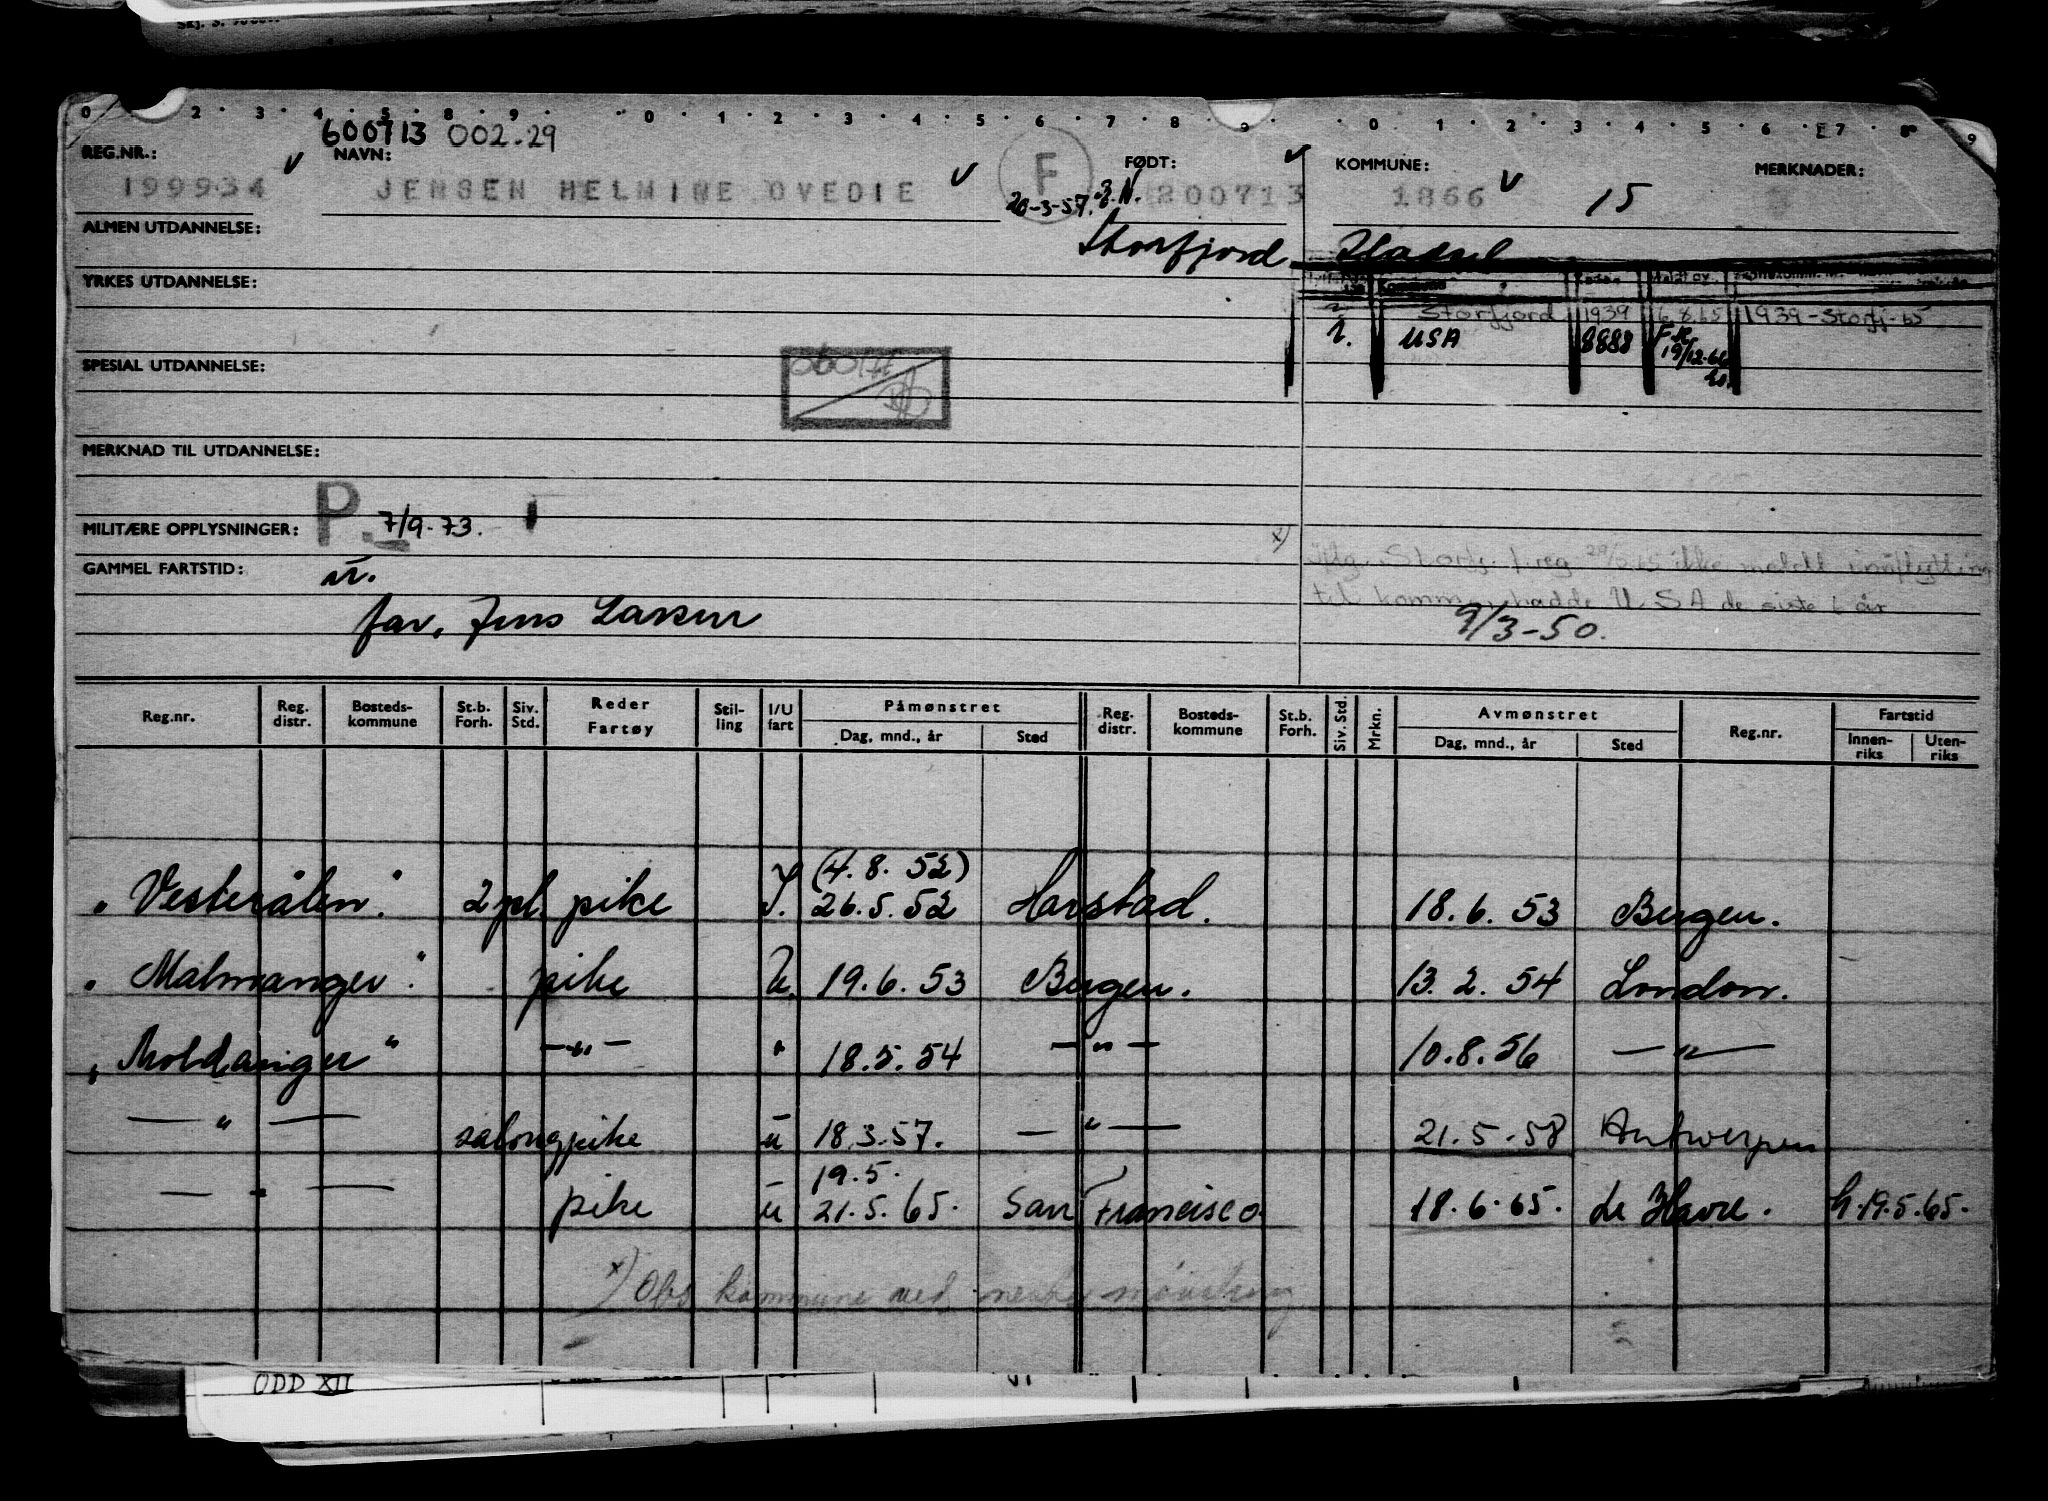 0 2 3 4 5 8 9 0 1 2 3 4 5 6 7 8 9 0 1 2 3 4 5 6 7 8 9
600713 002-29
REG.NR.: NAVN: FØDT: KOMMUNE: MERKNADER:
199934 JENSEN HELMINE OVEDIE F 200713 1866 15
20-3-57.
ALMEN UTDANNELSE: Storfjord Hadsel
YRKES UTDANNELSE: Kommune
Storfjord 1939 6.8.65 1939-Storfj-65
1. USA 8888 F.R. 19/12-66
SPESIAL UTDANNELSE:
MERKNAD TIL UTDANNELSE:
MILITÆRE OPPLYSNINGER: P. 7/9-73.
x) Iflg. Storfj. f.reg ikke meldt innflytting
GAMMEL FARTSTID: u.
til kommunen hadde USA de siste 6 år
far. Jens Larsen 9/3-50.
Reg.nr. Reg. distr. Bosteds-kommune St.b. Forh. Siv. Std. Reder Fartøy Stil-ling I/U fart Påmønstret Dag, mnd., år Sted Reg. distr. Bosteds-kommune St.b. Forh. Siv. Std. Mrkn. Avmønstret Dag, mnd., år Sted Reg.nr. Fartstid Innen-riks Uten-riks
(4.8.52)
„Vesterålen" 2 pl. pike I. 26.5.52 Harstad. 18.6.53 Bergen.
„Malmanger" pike U. 19.6.53 Bergen. 13.2.54 London.
„Moldanger" —"— " 18.5.54 —"— 10.8.56 —"—
—"— salongpike u 18.3.57. —"— 21.5-58 Antwerpen
19.5.
—"— pike u 21.5.65. San Francisco 18.6.65. Le Havre. h.19.5.65.
x) Obs kommune ved neste mønstring
ODD XII